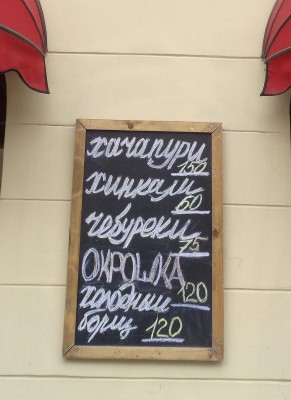 хачапури
150
хинкали
60
чебуреки
75
ОКРОШКА
120
холодный
борщ 120